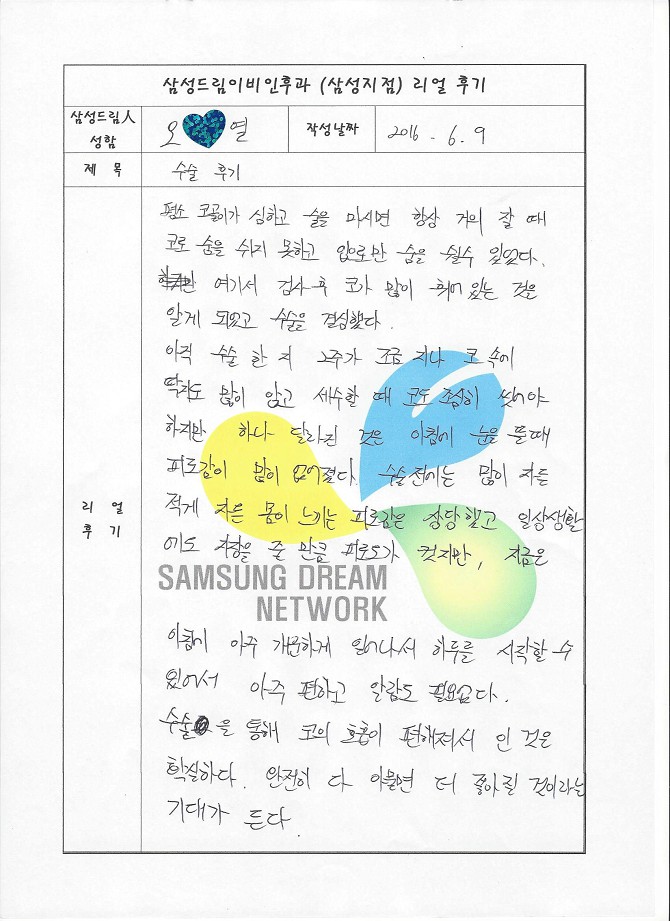 삼성드림이비인후과 (삼성지점) 리얼 후기
삼성드림人
성함
오 열
작성날짜
2016 . 6. 9
제 목
수술 후기
리 얼
후 기
평소 코골이가 심하고 술을 마시면 항상 거의 잘 때
코로 숨을 쉬지 못하고 입으로만 숨을 쉴수 있었다.
여기서 검사후 코가 많이 휘어 있는 것을
알게 되었고 수술을 결심했다.
아직 수술 한 지 2주가 조금 지나 코 속에
딱지도 많이 앉고 세수할 때 코도 조심히 씻어야
하지만 하나 달라진 것은 아침에 눈을 뜰때
피로감이 많이 없어졌다. 수술전에는 많이 자든
적게 자든 몸이 느끼는 피로감은 상당했고 일상생활
에도 지장을 줄 만큼 피로도가 컸지만, 지금은
SAMSUNG DREAM
NETWORK
아침에 아주 개운하게 일어나서 하루를 시작할 수
있어서 아주 편하고 알람도 필요없다.
수술을 통해 코의 호흡이 편해져서 인 것은
확실하다. 완전히 다 아물면 더 좋아질 것이라는
기대가 든다.